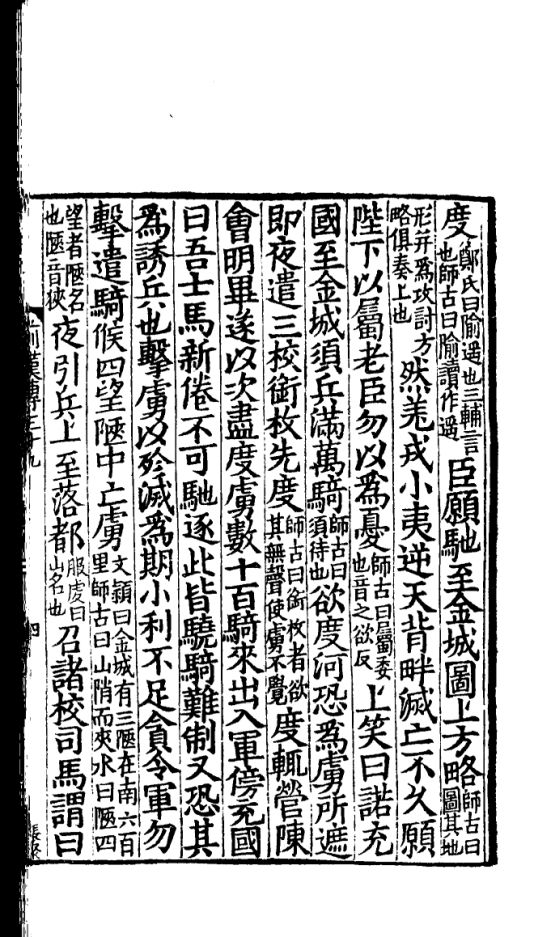 度鄭氏曰隃遥也三輔言也師古曰隃讀作遥臣願馳至金城圖上方略師古曰圖其地
形并爲攻討方略俱奏上也然羌戎小夷逆天背畔滅亡不久願
陛下以屬老臣勿以爲憂師古曰屬委也音之欲反上笑曰諾充
國至金城須兵滿萬騎師古曰須待也欲度河恐爲虜所遮
即夜遣三校銜枚先度師古曰銜枚者欲其無聲使虜不覺度輒營陳
會明畢遂以次盡度虜數十百騎來出入軍傍充國
曰吾士馬新倦不可馳逐此皆驍騎難制又恐其
爲誘兵也擊虜以殄滅爲期小利不足貪令軍勿
擊遣騎候四望陿中亡虜文穎曰金城有三陿在南六百里師古曰山陗而夾水曰陿四
望者陿名也陿音狹夜引兵上至落都服虔曰山名也召諸校司馬謂曰
前漢傳三十九
四